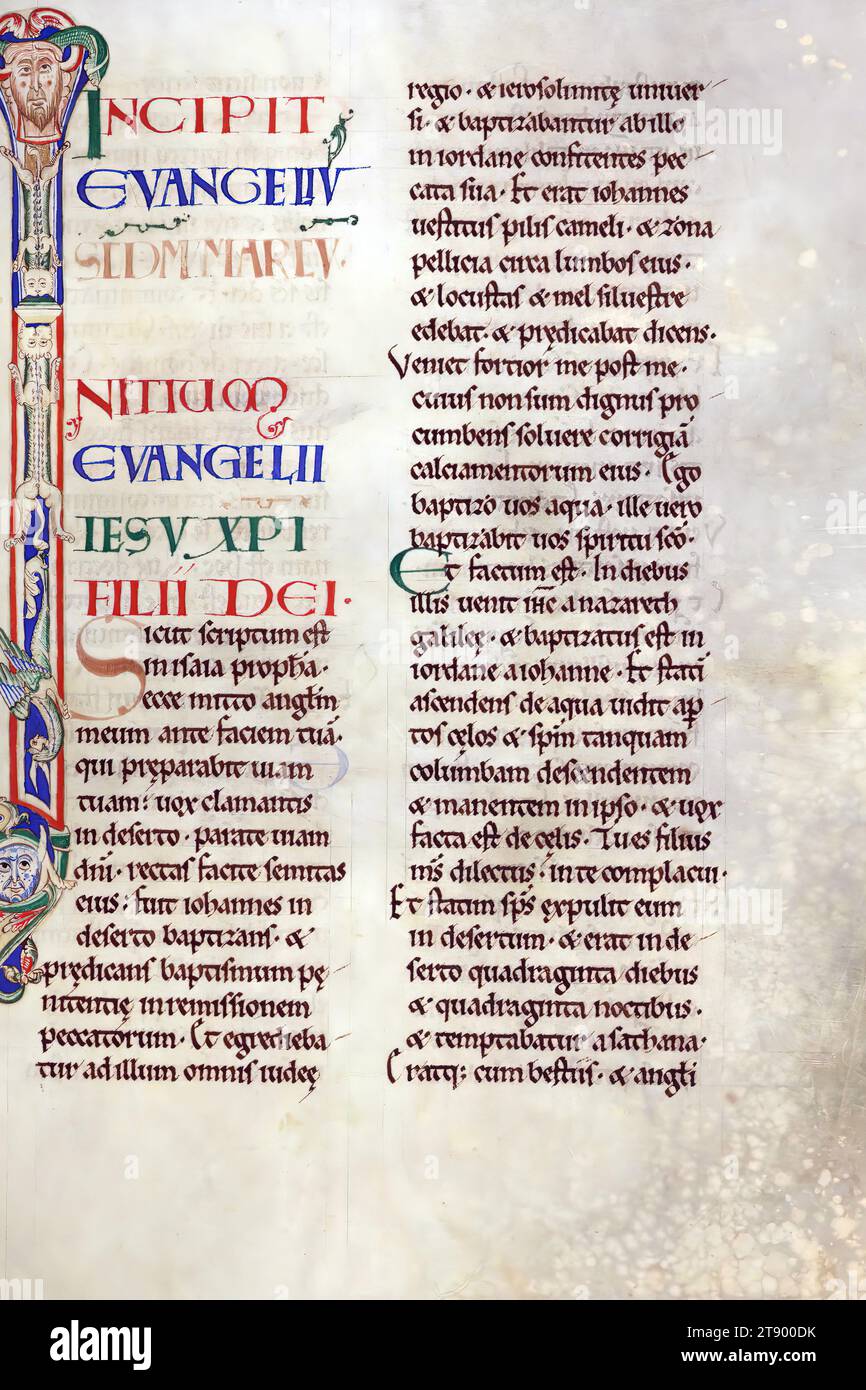 INCIPIT
EVANGELIV
SEDM MARCV·
NITIUM
EVANGELII
IESV XPI
FILII DEI·
Sicut scriptum est
in isaia proph̄a·
ecce mitto angl̄m
meum ante faciem tuā·
qui pręparabit uiam
tuam; uox clamantis
in deserto· parate uiam
dn̄i· rectas facite semitas
eius; fuit iohannes in
deserto baptizans· &
prędicans baptismum pę
nitentię in remissionem
peccatorum· Et egredieba
tur ad illum omnis iudeę
regio· & ierosolimitę uniuer
si· & baptizabantur ab illo
in iordane confitentes pec
cata sua· Et erat iohannes
uestitus pilis cameli· & zona
pellicia circa lumbos eius·
& locustas & mel siluestre
edebat· & prędicabat dicens·
Veniet fortior me post me·
cuius non sum dignus pro
cumbens soluere corrigiā
calciamentorum eius· Ego
baptizo uos aqua· ille uero
baptizabit uos spiritu sc̄o·
Et factum est· In diebus
illis uenit ih̄c a nazareth
galileę· & baptizatus est in
iordane a iohanne· Et statī
ascendens de aqua uidit ap̄
tos cęlos & sp̄m tanquam
columbam descendentem
& manentem in ipso· & uox
facta est de cęlis· Tu es filius
m̄s dilectus· in te complacui·
Et statim sp̄s expulit eum
in desertum· & erat in de
serto quadraginta diebus
& quadraginta noctibus·
& temptabatur a sathana·
Eratq; cum bestiis· & angl̄i
alamy
alamy
Image ID: 2T900DK
www.alamy.com